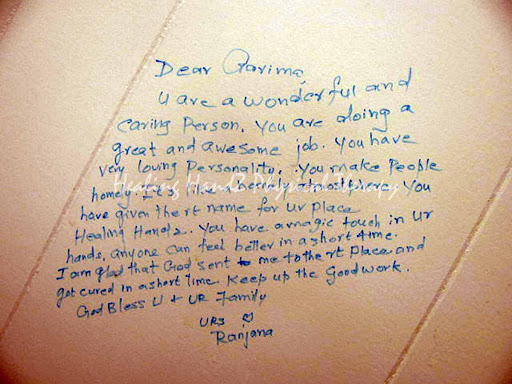 Dear Garima,
U are a wonderful and
caring Person. You are doing a
great and awesome job. You have
very loving Personality. You make People
homey. It's a atmosphere. You
Healing Hands Physical Therapy
have given the rt name for ur Place
Healing Hands. You have a magic touch in ur
hands, anyone can feel better in a short time.
I am glad that God sent to me to the rt Place and
got cured in a short time. Keep up the Good work.
God Bless U & UR Family
URS
Ranjana